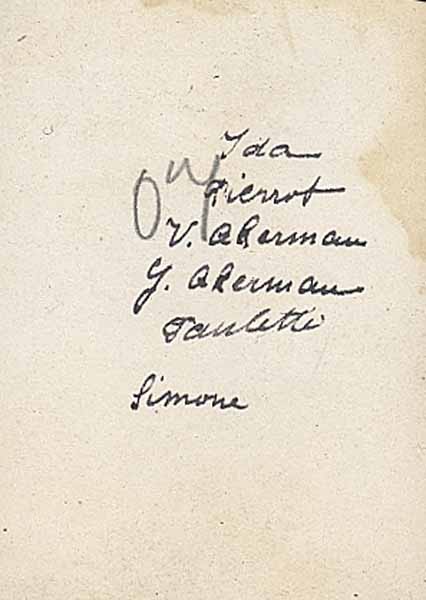 Ida
Pierrot
V. Akerman
G. Akerman
Paulette
Simone